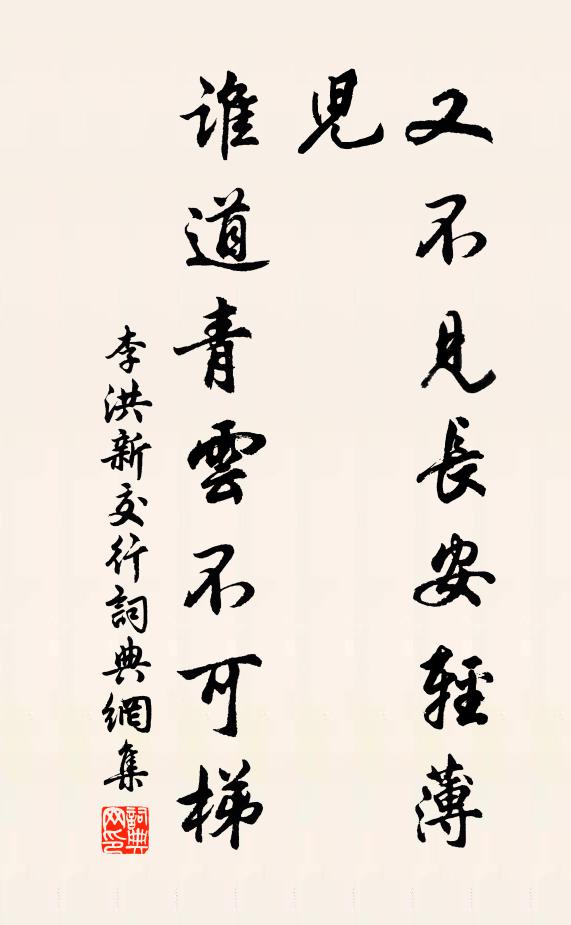 又不見長安輕薄
児
誰道青雲不可梯
李洪新交行詞典網集
詞典網印